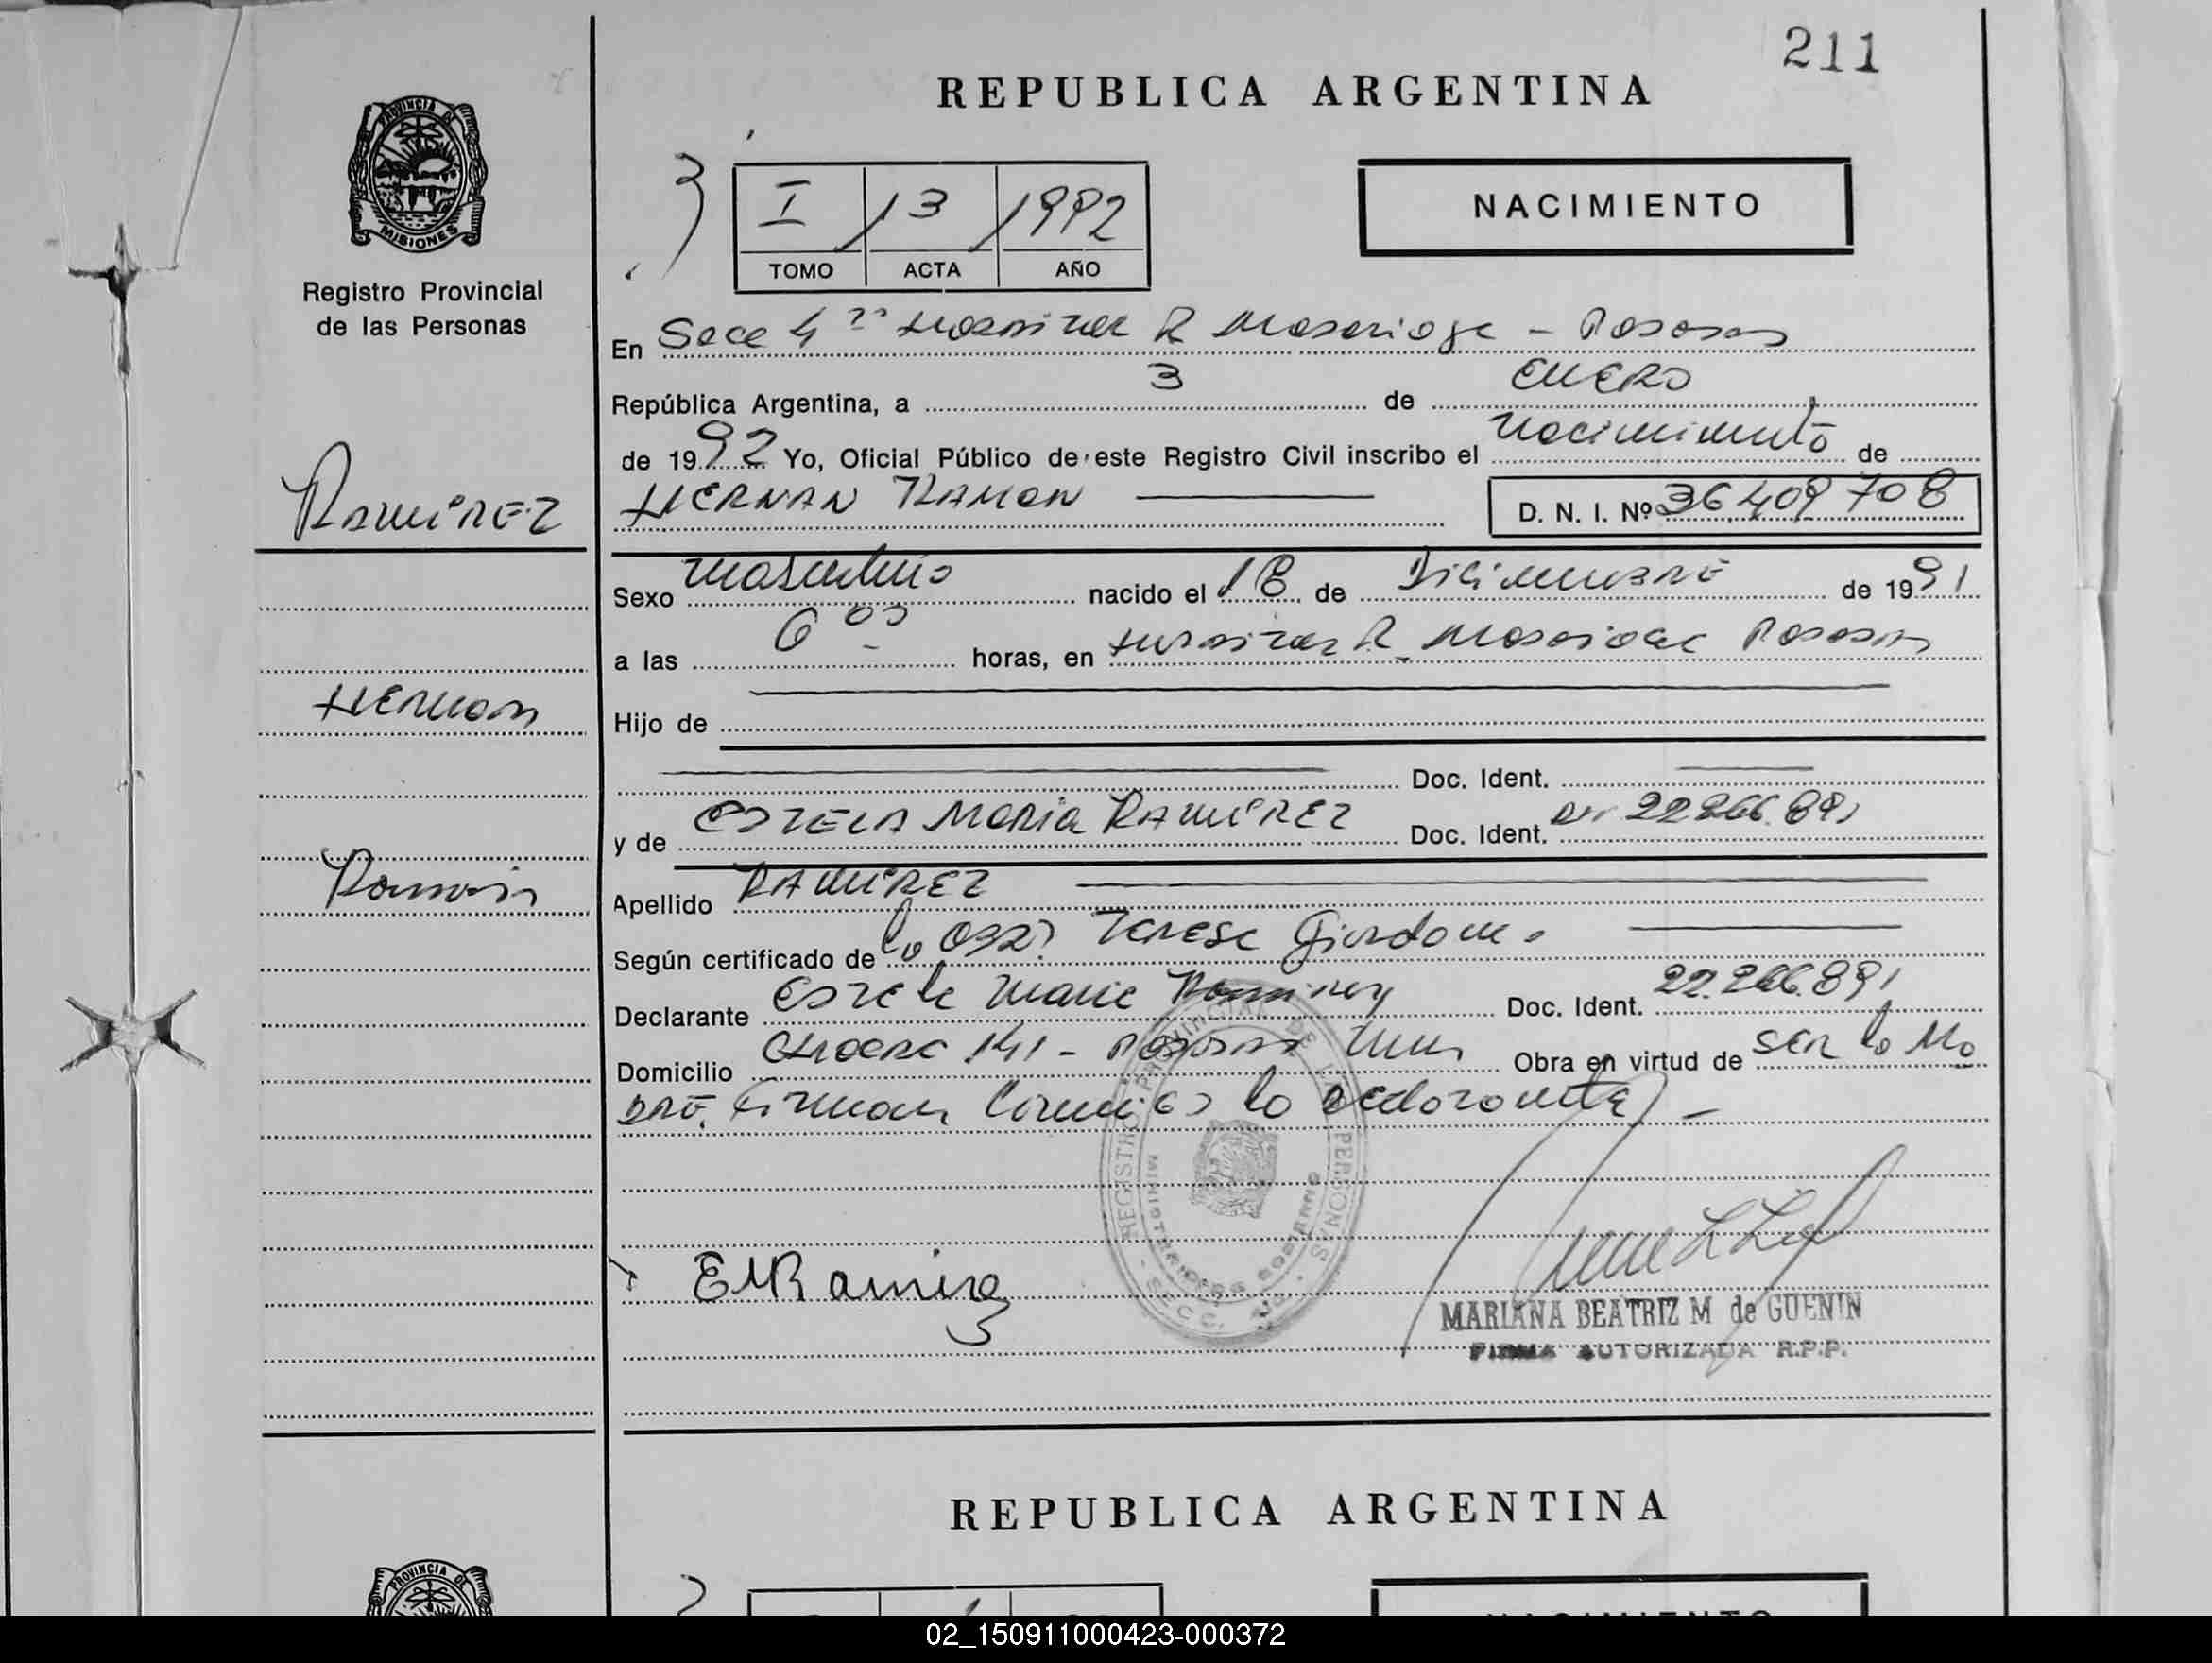 211
REPUBLICA ARGENTINA
PROVINCIA DE
MISIONES
Registro Provincial
de las Personas
I 13 1992
TOMO ACTA AÑO
NACIMIENTO
En Secc 4 Hospital R Madariaga - Posadas
República Argentina, a 3 de ENERO
de 1992 Yo, Oficial Público de este Registro Civil inscribo el nacimiento de
HERNAN RAMON D. N. I. Nº 36.409 708
RAMIREZ
Sexo masculino nacido el 18 de Diciembre de 1991
a las 6 00 horas, en Hospital R. Madariaga Posadas
HERNAN
Hijo de
Doc. Ident.
y de ESTELA MARIA RAMIREZ Doc. Ident. 22 266.891
Ramon
Apellido RAMIREZ
Según certificado de la Obst Teresa Giordano
Declarante Estela Maria Ramirez Doc. Ident. 22.266.891
Domicilio 141 - Posadas Mnes Obra en virtud de ser la Ma
DRE. Firman Conmigo la declarante -
REGISTRO PROVINCIAL DE LAS PERSONAS
MINISTERIO DE GOBIERNO
SECC.
EMRamirez
MARIANA BEATRIZ M de GUENIN
FIRMA AUTORIZADA R.P.P.
REPUBLICA ARGENTINA
PROVINCIA DE
NACIMIENTO
02_150911000423-000372